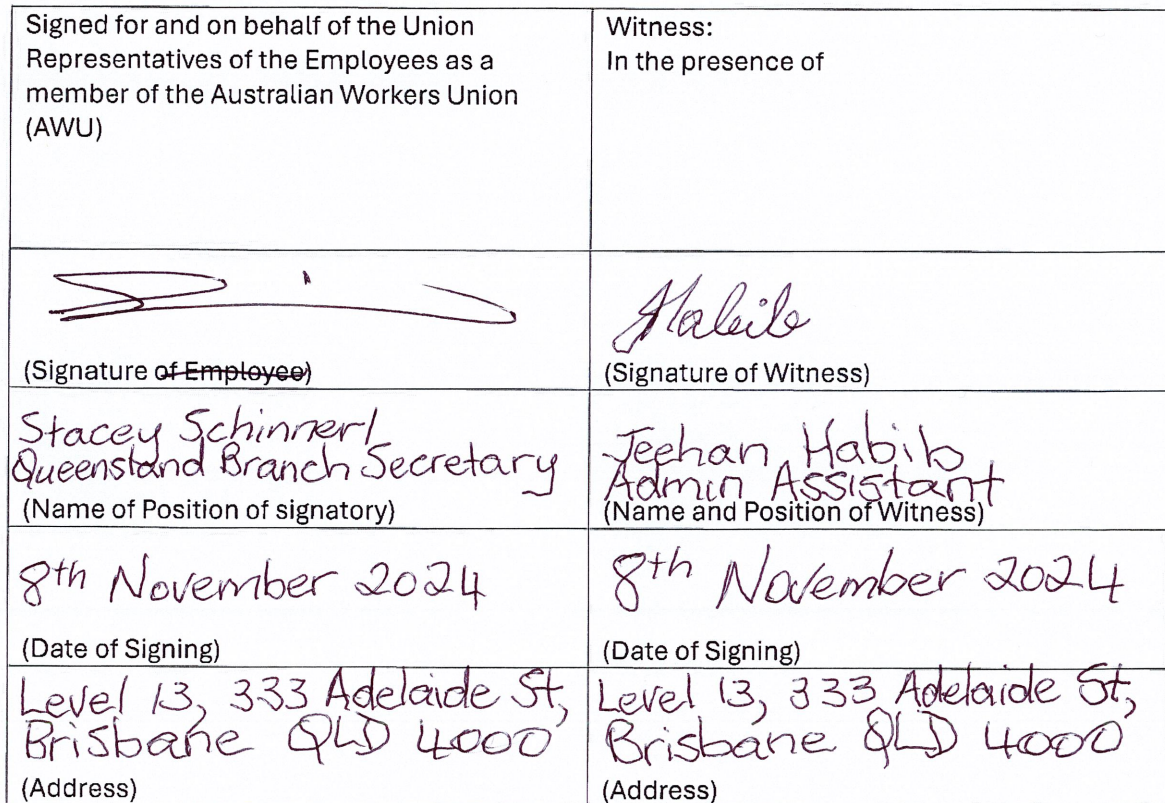 Signed for and on behalf of the Union
Representatives of the Employees as a
member of the Australian Workers Union
(AWU)
Witness:
In the presence of
(Signature of Employee)
Habib
(Signature of Witness)
Stacey Schinnerl
Queensland Branch Secretary
(Name of Position of signatory)
Jeehan Habib
Admin Assistant
(Name and Position of Witness)
8th November 2024
(Date of Signing)
8th November 2024
(Date of Signing)
Level 13, 333 Adelaide St,
Brisbane QLD 4000
(Address)
Level 13, 333 Adelaide St,
Brisbane QLD 4000
(Address)